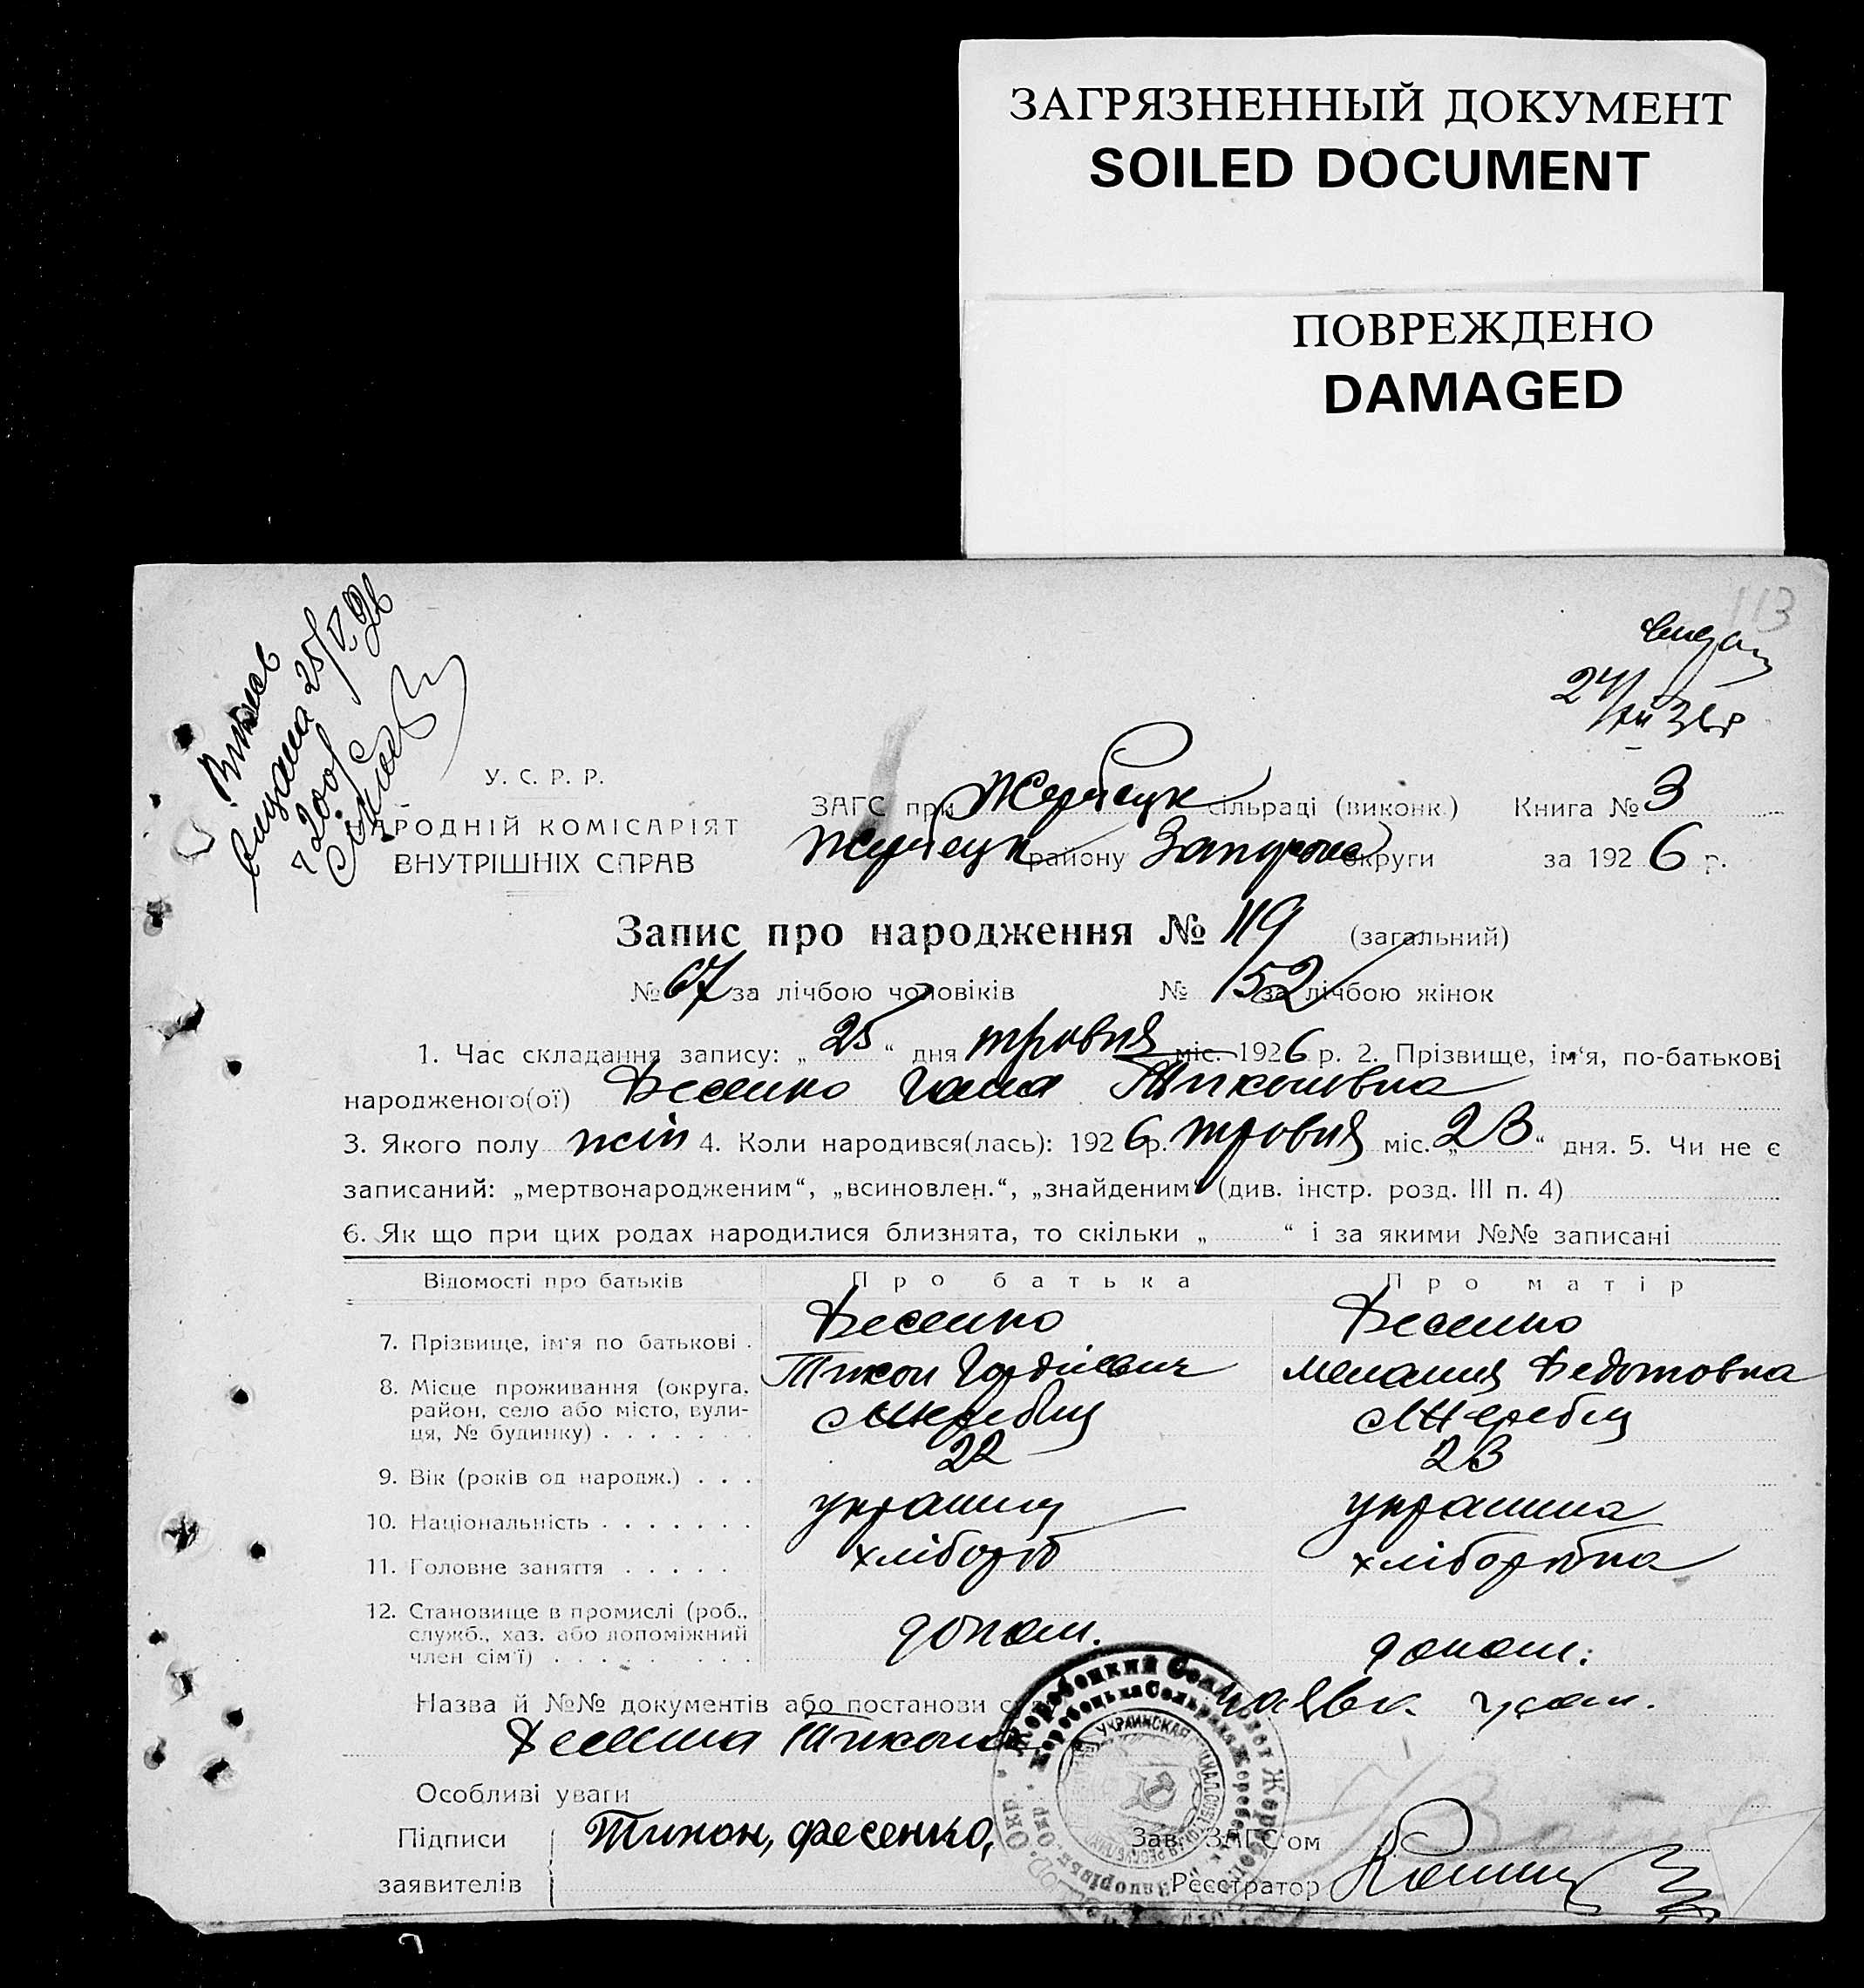 ЗАГРЯЗНЕННЫЙ ДОКУМЕНТ
SOILED DOCUMENT
ПОВРЕЖДЕНО
DAMAGED
113
видан
24/VII 36р
видана 25/V 26
У. С. Р. Р.
НАРОДНІЙ КОМІСАРІЯТ
ВНУТРІШНІХ СПРАВ
ЗАГС при Жеребецк сільраді (виконк.) Книга № 3
Жеребецк району Запорож округи за 1926 р.
Запис про народження № 119 (загальний)
№ 67 за лічбою чоловіків № 52 за лічбою жінок
1. Час складання запису: „ 25 “ дня травня міс. 1926 р. 2. Прізвище, ім‘я, по-батькові
народженого(ої) Фесенко Гана Тихоновна
3. Якого полу жін 4. Коли народився(лась): 1926 р. травня міс. „ 23 “ дня. 5. Чи не є
записаний: „мертвонародженим“, „всиновлен.“, „знайденим“ (див. інстр. розд. III п. 4)
6. Як що при цих родах народилися близнята, то скільки „ “ і за якими №№ записані
Відомості про батьків Про батька Про матір
7. Прізвище, ім‘я по батькові . Фесенко Фесенко
Тихон Гордієвич Мелания Федотовна
8. Місце проживання (округа, район, село або місто, вули-ця, № будинку) с Жеребец с Жеребец
9. Вік (років од народж.) . . . 22 23
10. Національність . . . . . . . українец українка
11. Головне заняття . . . . . хлібороб хліборобка
12. Становище в промислі (роб., служб., хаз. або допоміжний член сім‘ї) . . . . . . . . . допом. допом.
Назва й №№ документів або постанови заявк. усна.
Фесенка Тихона
Особливі уваги
Підписи Тихон, фесенко, Зав. ЗАГС‘ом
заявителів Реєстратор